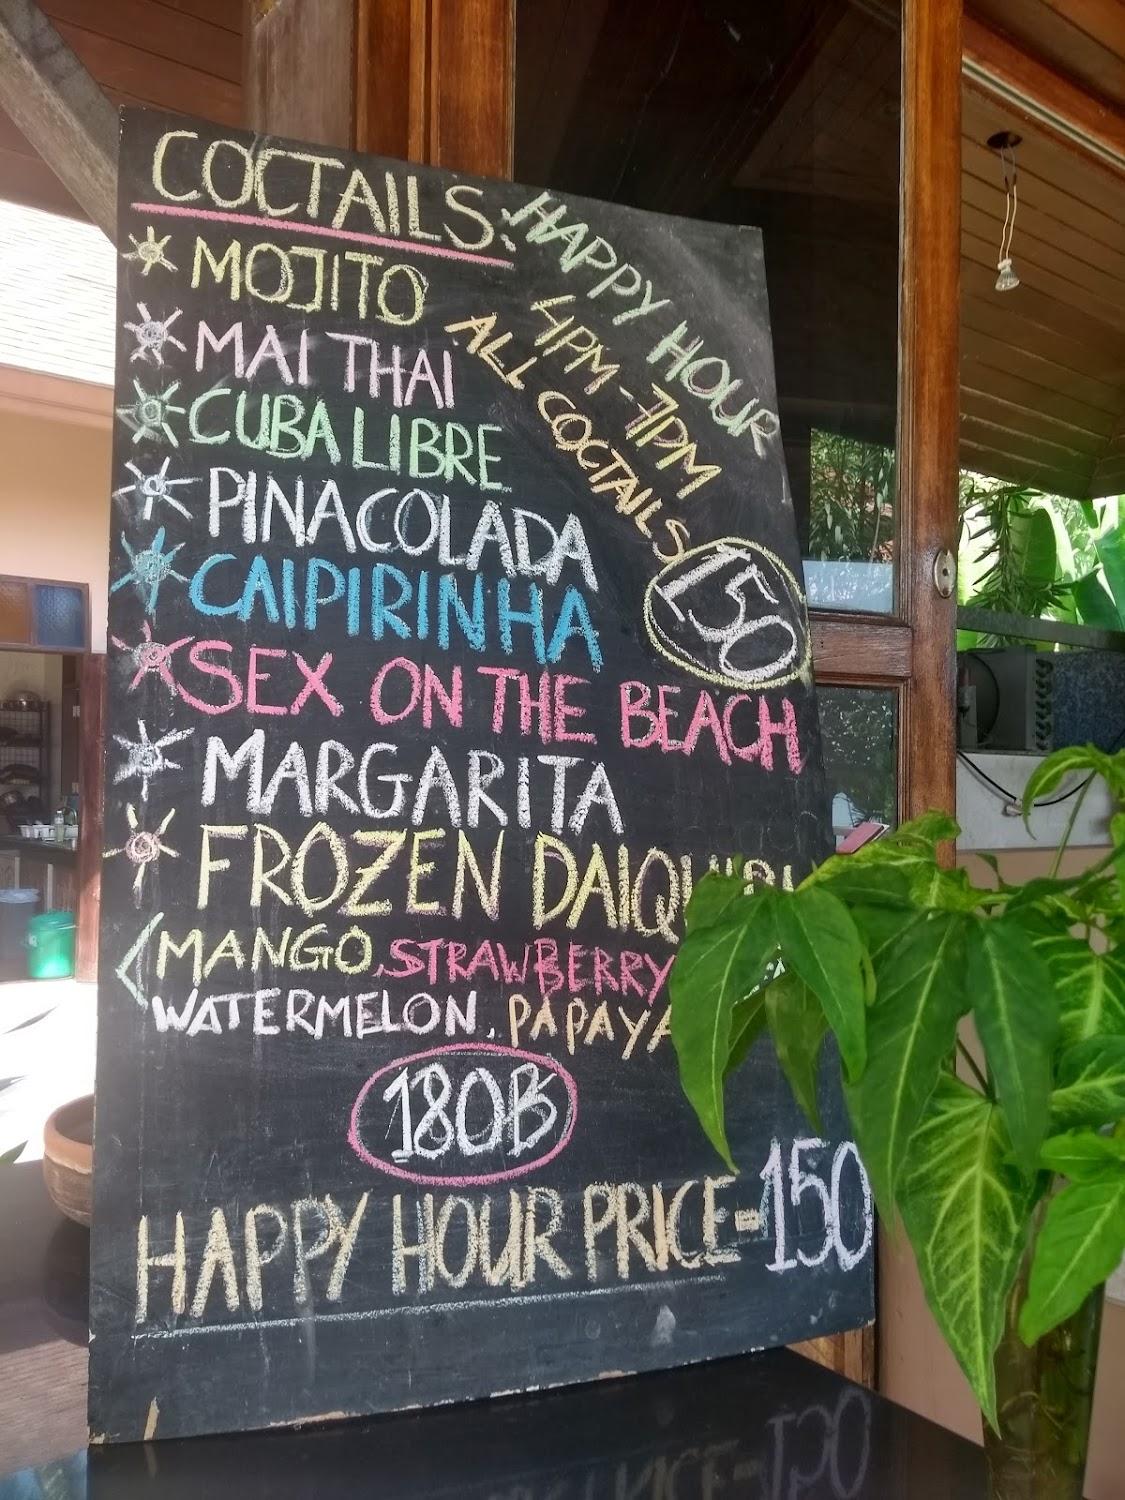 COCTAILS:
HAPPY HOUR
4PM-7PM
ALL COCTAILS
150
MOJITO
MAI THAI
CUBA LIBRE
PINACOLADA
CAIPIRINHA
SEX ON THE BEACH
MARGARITA
FROZEN DAIQUIRI
(MANGO, STRAWBERRY
WATERMELON, PAPAYA
180B
HAPPY HOUR PRICE=150